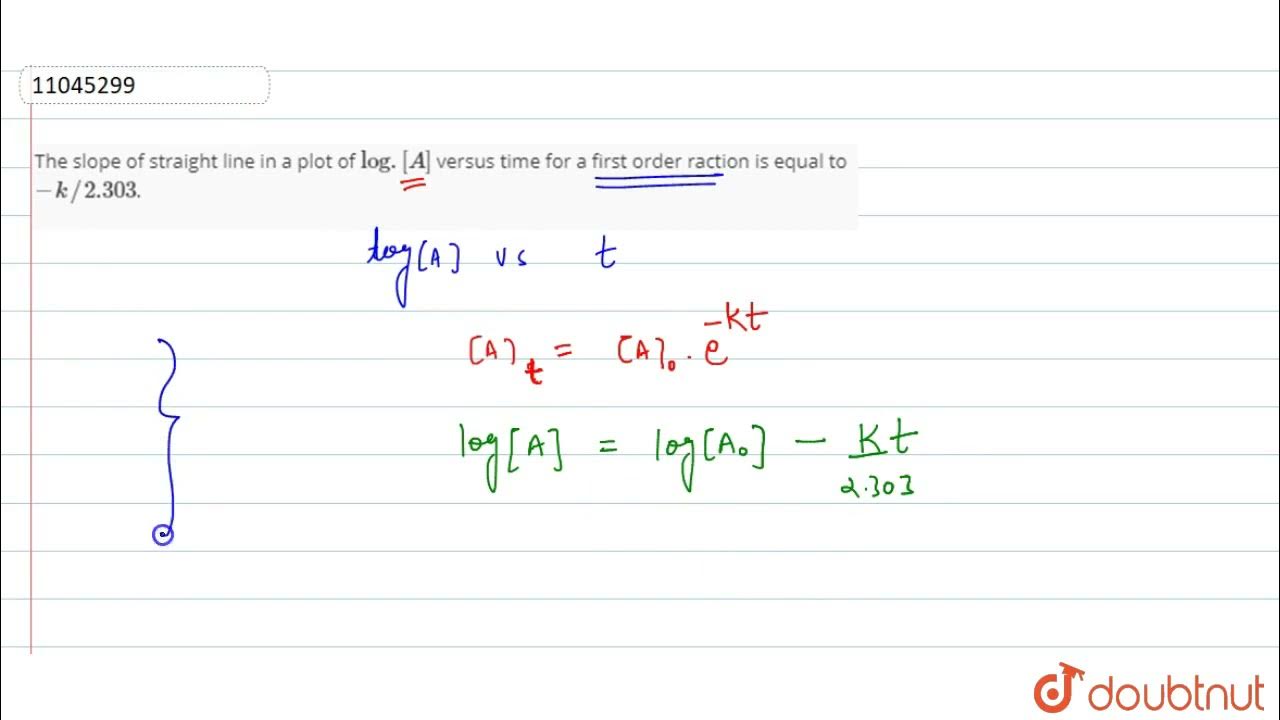 11045299
The slope of straight line in a plot of log. [A] versus time for a first order raction is equal to
−k/2.303.
log[A] vs t
[A]t = [A]0 . e^-Kt
log[A] = log[A0] - Kt
2.303
doubtnut